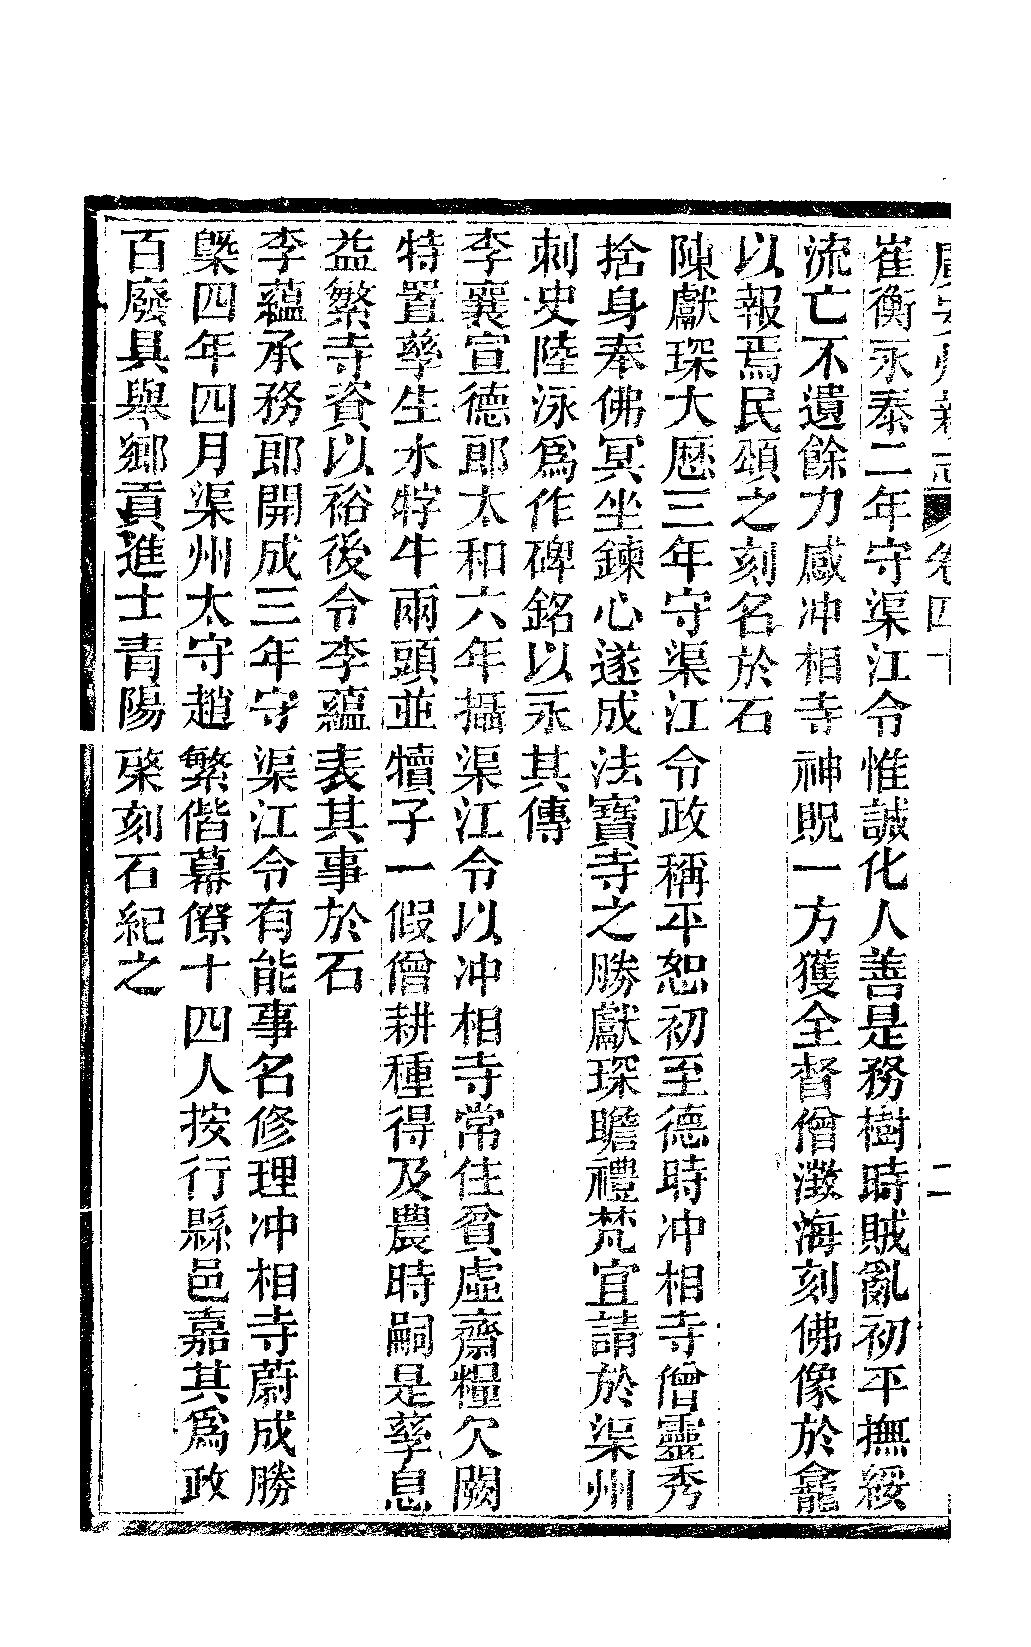 廣安州新志 卷四十 二
崔衡永泰二年守渠江令惟誠化人善是務樹時賊亂初平撫綏
流亡不遺餘力感冲相寺神貺一方獲全督僧澂海刻佛像於龕
以報焉民頌之刻名於石
陳獻琛大厯三年守渠江令政稱平恕初至德時冲相寺僧靈秀
捨身奉佛冥坐鍊心遂成法寶寺之勝獻琛瞻禮梵宜請於渠州
刺史陸泳爲作碑銘以永其傳
李襄宣德郎太和六年攝渠江令以冲相寺常住貧虛齋糧欠闕
特置孳生水牸牛兩頭並犢子一假僧耕種得及農時嗣是孳息
益繁寺資以裕後令李蘊表其事於石
李蘊承務郎開成三年守渠江令有能事名修理冲相寺蔚成勝
槩四年四月渠州太守趙繁偕幕僚十四人按行縣邑嘉其爲政
百廢具舉鄉貢進士青陽棨刻石紀之